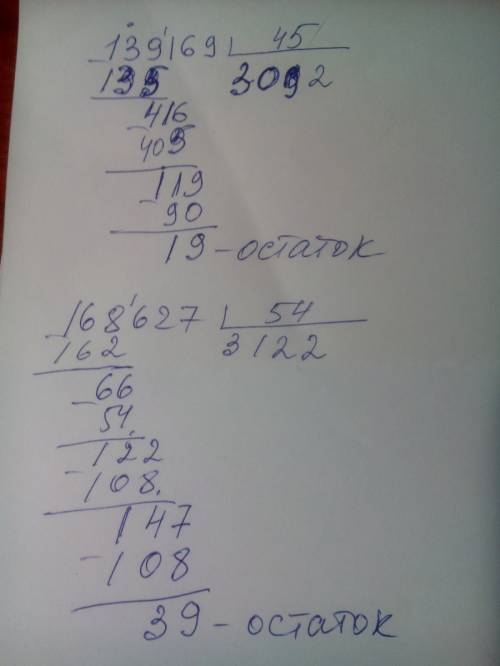 139'169 45
135 3092
416
405
119
90
19 - остаток
168'627 54
162 3122
66
54
122
108.
147
108
39 - остаток